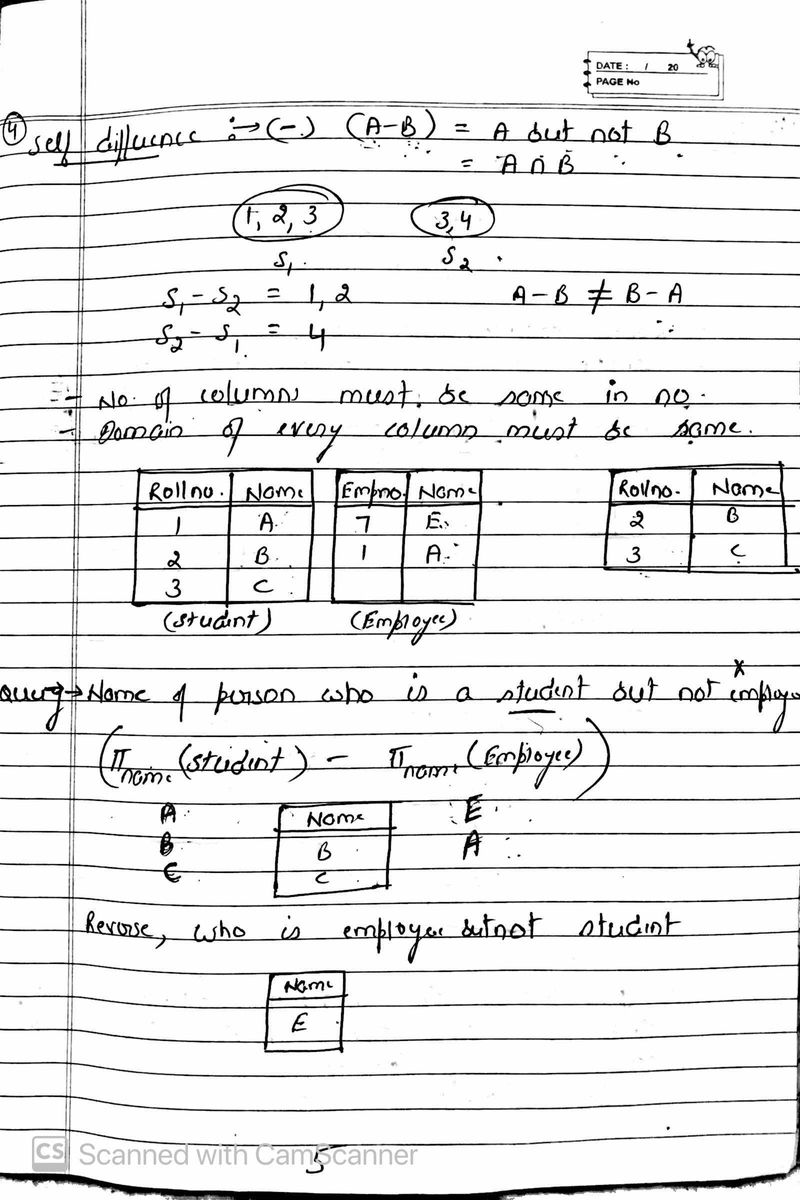 DATE : / 20
PAGE No
④ self diffuence :→ (-) (A-B) = A but not B
= A ∩ B̅
1, 2, 3 3,4
S₁ S₂
S₁ - S₂ = 1, 2 A-B ≠ B-A
S₂ - S₁ = 4
- No. of columns must be same in no.
- Domain of every column must be same.
Rollno. Name Empno. Name Rollno. Name
1 A 7 E 2 B
2 B 1 A 3 C
3 C
(Student) (Employee)
query → Name of person who is a student but not employe
x
(π name (Student) - π name (Employee))
A Name E
B B A
C C
Reverse, who is employee but not student
Name
E
5
CS Scanned with CamScanner